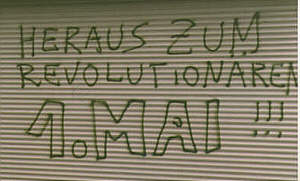 HERAUS ZUM
REVOLUTiONÄREN
1. MAI !!!